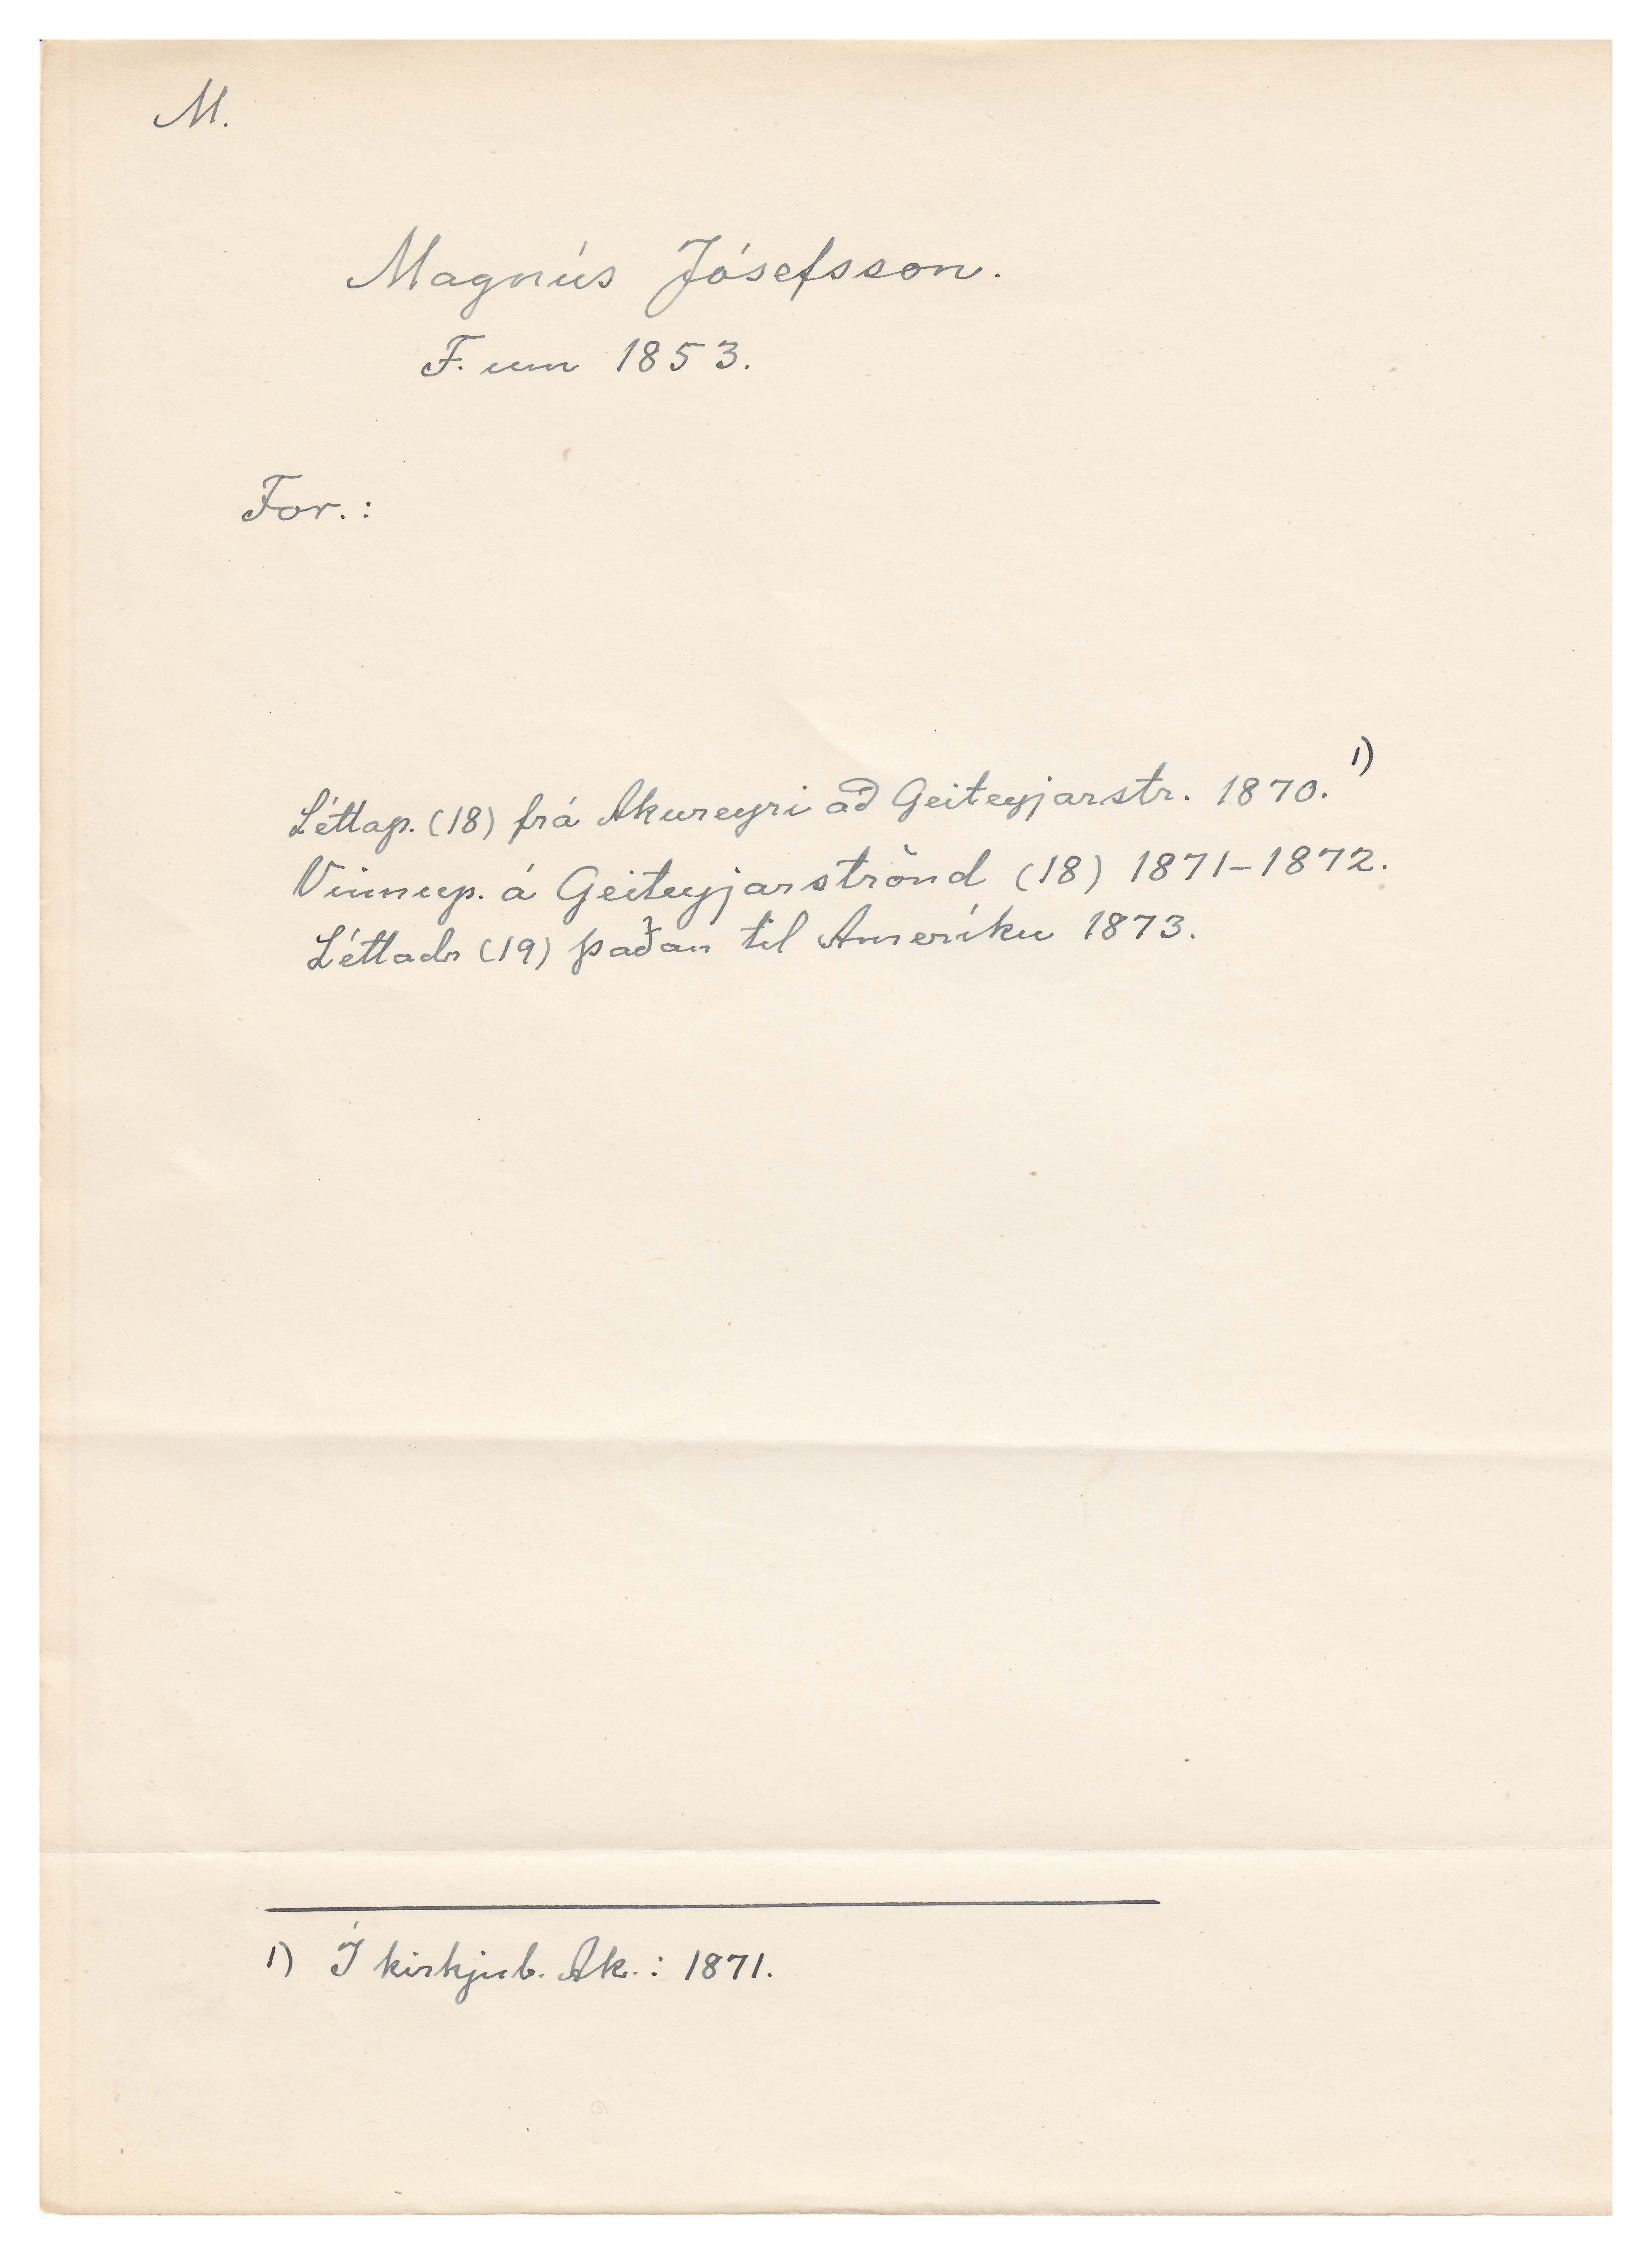 M.
Magnús Jósefsson.
F. um 1853.
For.:
Léttap. (18) frá Akureyri að Geiteyjarstr. 1870. 1)
Vinnup. á Geiteyjarströnd (18) 1871-1872.
Léttadr (19) þaðan til Ameríku 1873.
1) Í kirkjub. Ak.: 1871.